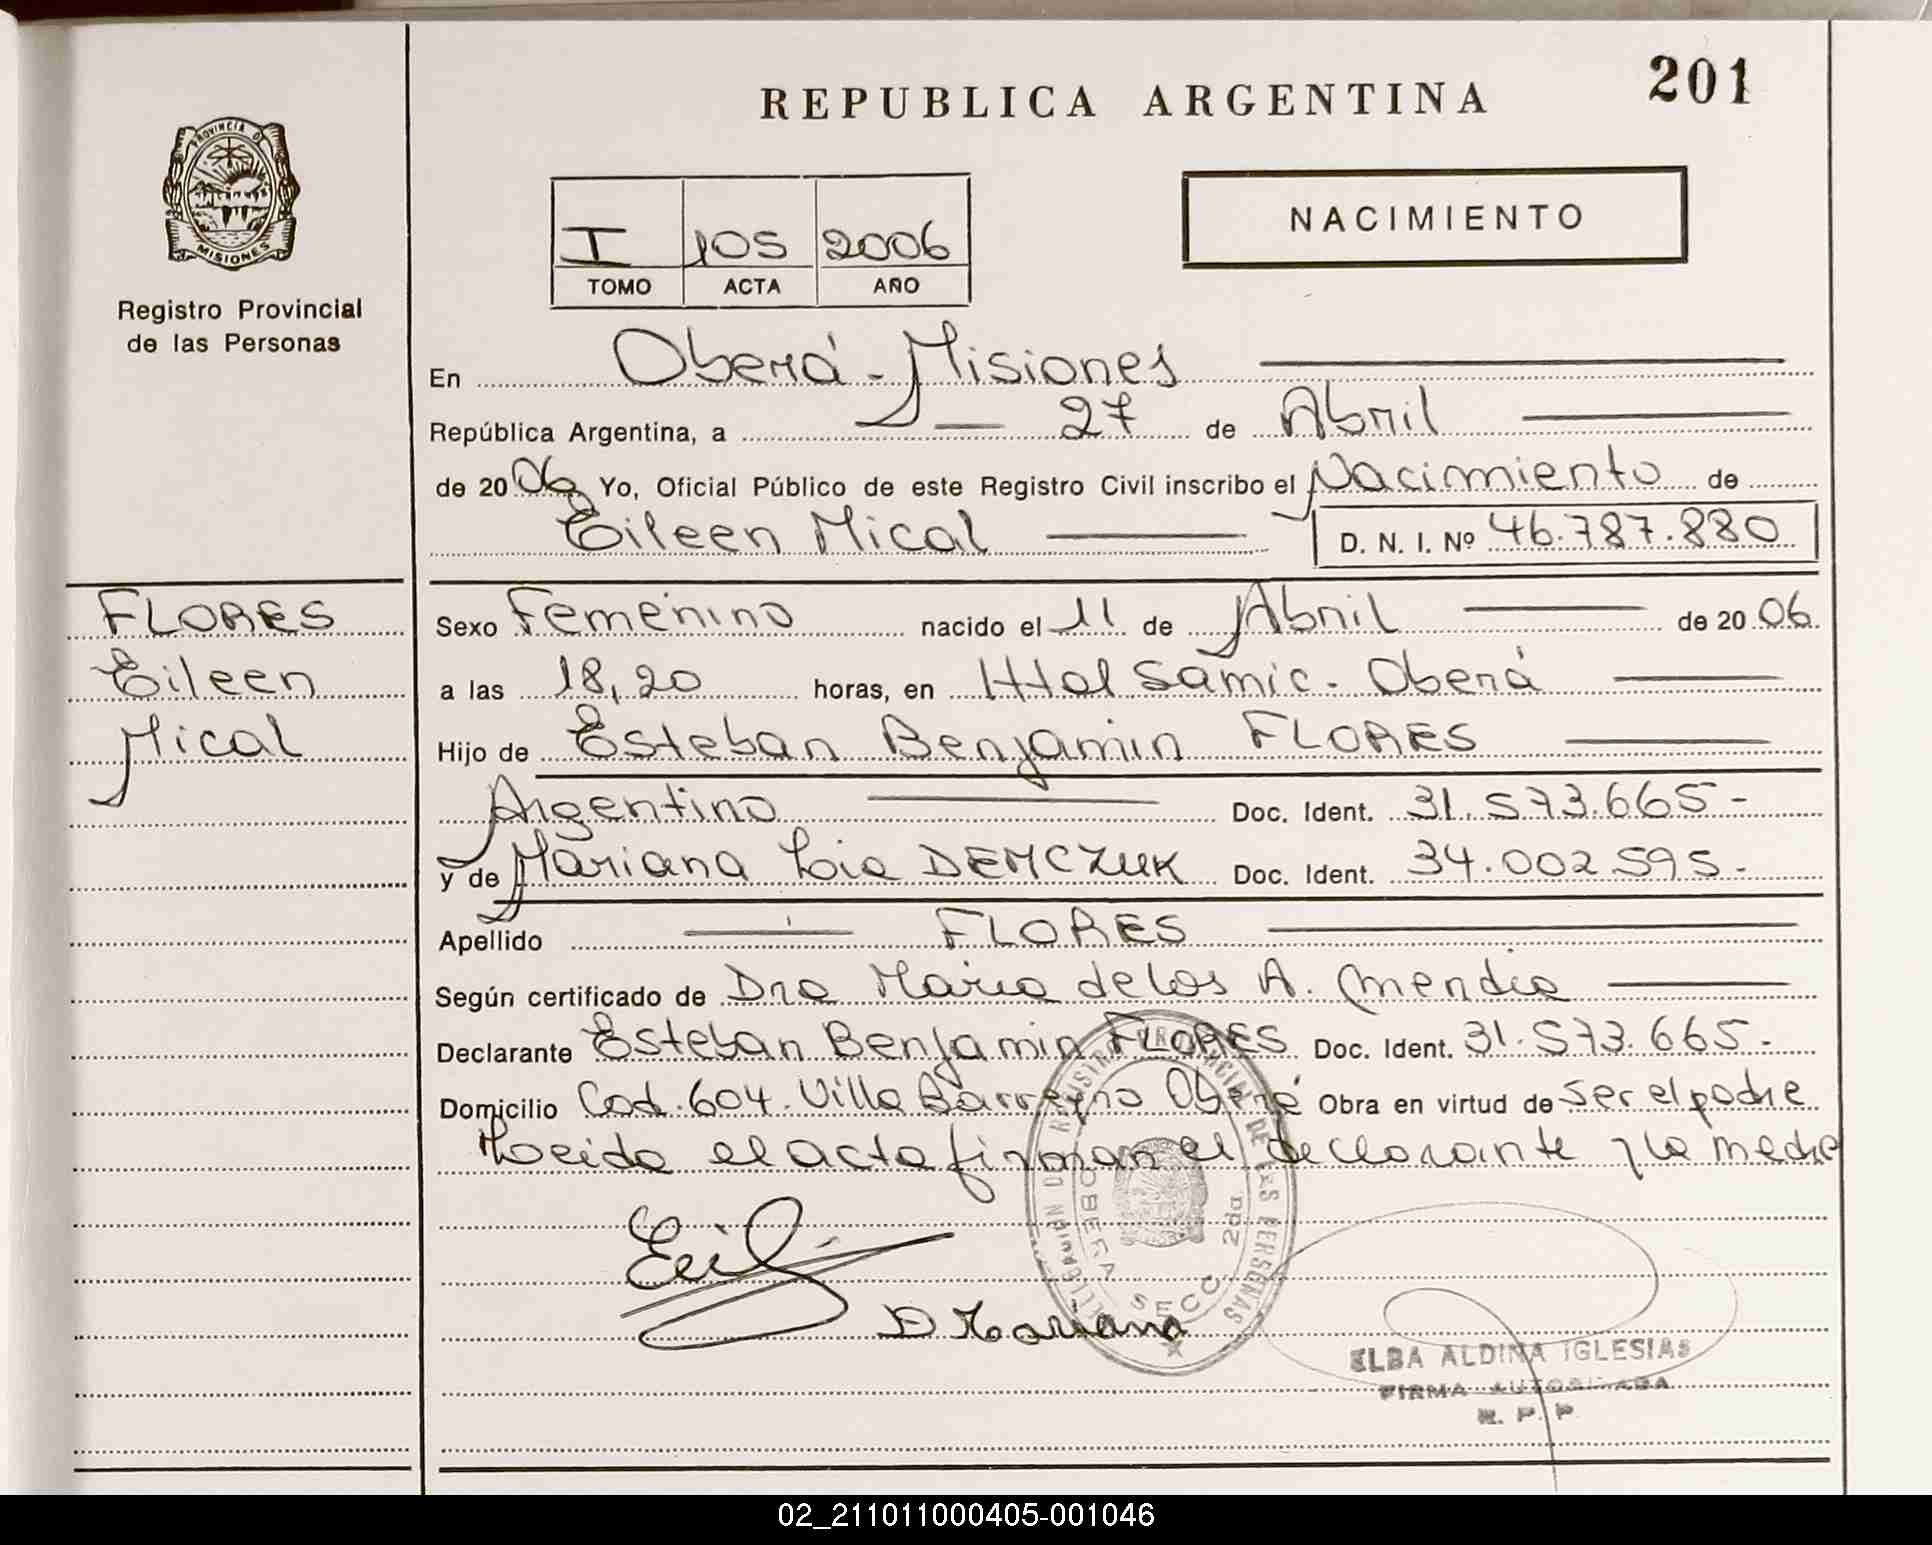 REPUBLICA ARGENTINA
201
PROVINCIA DE
MISIONES
Registro Provincial
de las Personas
I 105 2006
TOMO ACTA AÑO
NACIMIENTO
En Oberá - Misiones
República Argentina, a 27 de Abril
de 2006 Yo, Oficial Público de este Registro Civil inscribo el Nacimiento de
Eileen Mical D. N. I. Nº 46.787.880
FLORES
Eileen
Mical
Sexo Femenino nacido el 11 de Abril de 20 06.
a las 18,20 horas, en Htal Samic - Oberá
Hijo de Esteban Benjamin FLORES
Argentino Doc. Ident. 31.573.665-
y de Mariana DEMCZUK Doc. Ident. 34.002.595-
Apellido FLORES
Según certificado de Dra Maria de los A. Mendia
Declarante Esteban Benjamin FLORES Doc. Ident. 31.573.665-
Domicilio Cod. 604. Villa Barreyro Oberá Obra en virtud de ser el padre
Leida el acta firman el declarante y la madre
OBERA SECC. 2da
D Mariana
ELBA ALDINA IGLESIAS
FIRMA AUTORIZADA
R. P. P.
02_211011000405-001046